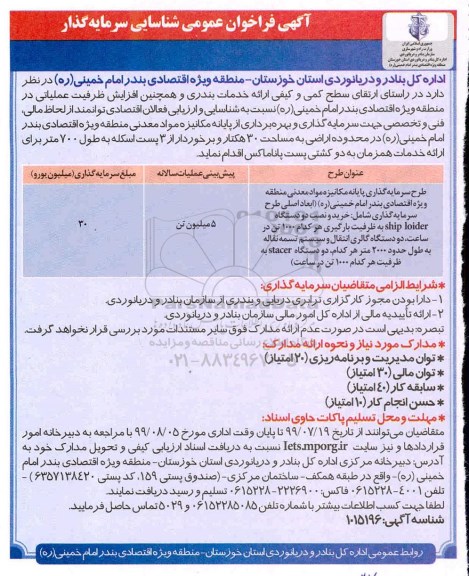 آگهی فراخوان عمومی شناسایی سرمایه‌گذار
جمهوری اسلامی ایران
وزارت راه و شهرسازی
سازمان بنادر و دریانوردی
اداره کل بنادر و دریانوردی استان خوزستان-منطقه ویژه اقتصادی بندر امام خمینی (ره) در نظر
دارد در راستای ارتقای سطح کمی و کیفی ارائه خدمات بندری و همچنین افزایش ظرفیت عملیاتی در
منطقه ویژه اقتصادی بندر امام خمینی(ره) نسبت به شناسایی و ارزیابی فعالان اقتصادی توانمند از لحاظ مالی،
فنی و تخصصی جهت سرمایه گذاری و بهره‌برداری از پایانه مکانیزه مواد معدنی منطقه ویژه اقتصادی بندر
امام خمینی(ره) در محدوده اراضی به مساحت ۳۰ هکتار و برخوردار از ۳ پست اسکله به طول ۷۰۰ متر برای
ارائه خدمات همزمان به دو کشتی پست پاناماکس اقدام نماید.
عنوان طرح | پیش‌بینی عملیات سالانه | مبلغ سرمایه گذاری (میلیون یورو)
طرح سرمایه گذاری پایانه مکانیزه مواد معدنی منطقه
ویژه اقتصادی بندر امام خمینی(ره) (ابعاد اصلی طرح
سرمایه گذاری شامل: خرید و نصب دو دستگاه
ship loider به ظرفیت بارگیری هر کدام ۱۰۰۰ تن در
ساعت، دو دستگاه گالری انتقال و سیستم تسمه نقاله
به طول حدود ۲۰۰۰ متر هر کدام، دو دستگاه stacer به
ظرفیت هر کدام ۱۰۰۰ تن در ساعت)
۵ میلیون تن
۳۰
*شرایط الزامی متقاضیان سرمایه گذاری:
۱- دارا بودن مجوز کارگزاری ترابری دریایی و بندری از سازمان بنادر و دریانوردی.
۲- ارائه تأییدیه مالی از اداره کل امور مالی سازمان بنادر و دریانوردی.
تبصره: بدیهی است در صورت عدم ارائه مدارک فوق سایر مستندات مورد بررسی قرار نخواهد گرفت.
*مدارک مورد نیاز و نحوه ارائه مدارک:
* توان مدیریت و برنامه‌ریزی (۲۰ امتیاز)
* توان مالی (۳۰ امتیاز)
* سابقه کار (۴۰ امتیاز)
* حسن انجام کار (۱۰ امتیاز)
۰۲۱-۸۸۳۴۹۶۷۰-۵
*مهلت و محل تسلیم پاکات حاوی اسناد:
متقاضیان می‌توانند از تاریخ ۹۹/۰۷/۱۹ تا پایان وقت اداری مورخ ۹۹/۰۸/۰۵ با مراجعه به دبیرخانه امور
قراردادها و نیز سایت Iets.mporg.ir نسبت به دریافت اسناد ارزیابی کیفی و تحویل مدارک خود به
آدرس: دبیرخانه مرکزی اداره کل بنادر و دریانوردی استان خوزستان- منطقه ویژه اقتصادی بندر امام
خمینی (ره)- واقع در طبقه همکف- ساختمان مرکزی- (صندوق پستی ۱۵۹، کد پستی ۶۳۵۷۱۳۸۴۲۰) -
تلفن ۴۰۰۱-۰۶۱۵۲۲۸ فاکس: ۲۲۲۶۹۰۰-۰۶۱۵۲۲۸ تسلیم و رسید دریافت نمایند.
لطفا جهت کسب اطلاعات بیشتر با شماره تلفن ۰۶۱۵۲۲۸۵۰۸۵ و ۵۰۲۹ تماس حاصل فرمایید.
شناسه آگهی: ۱۰۱۵۱۹۶
روابط عمومی اداره کل بنادر و دریانوردی استان خوزستان-منطقه ویژه اقتصادی بندر امام خمینی(ره)